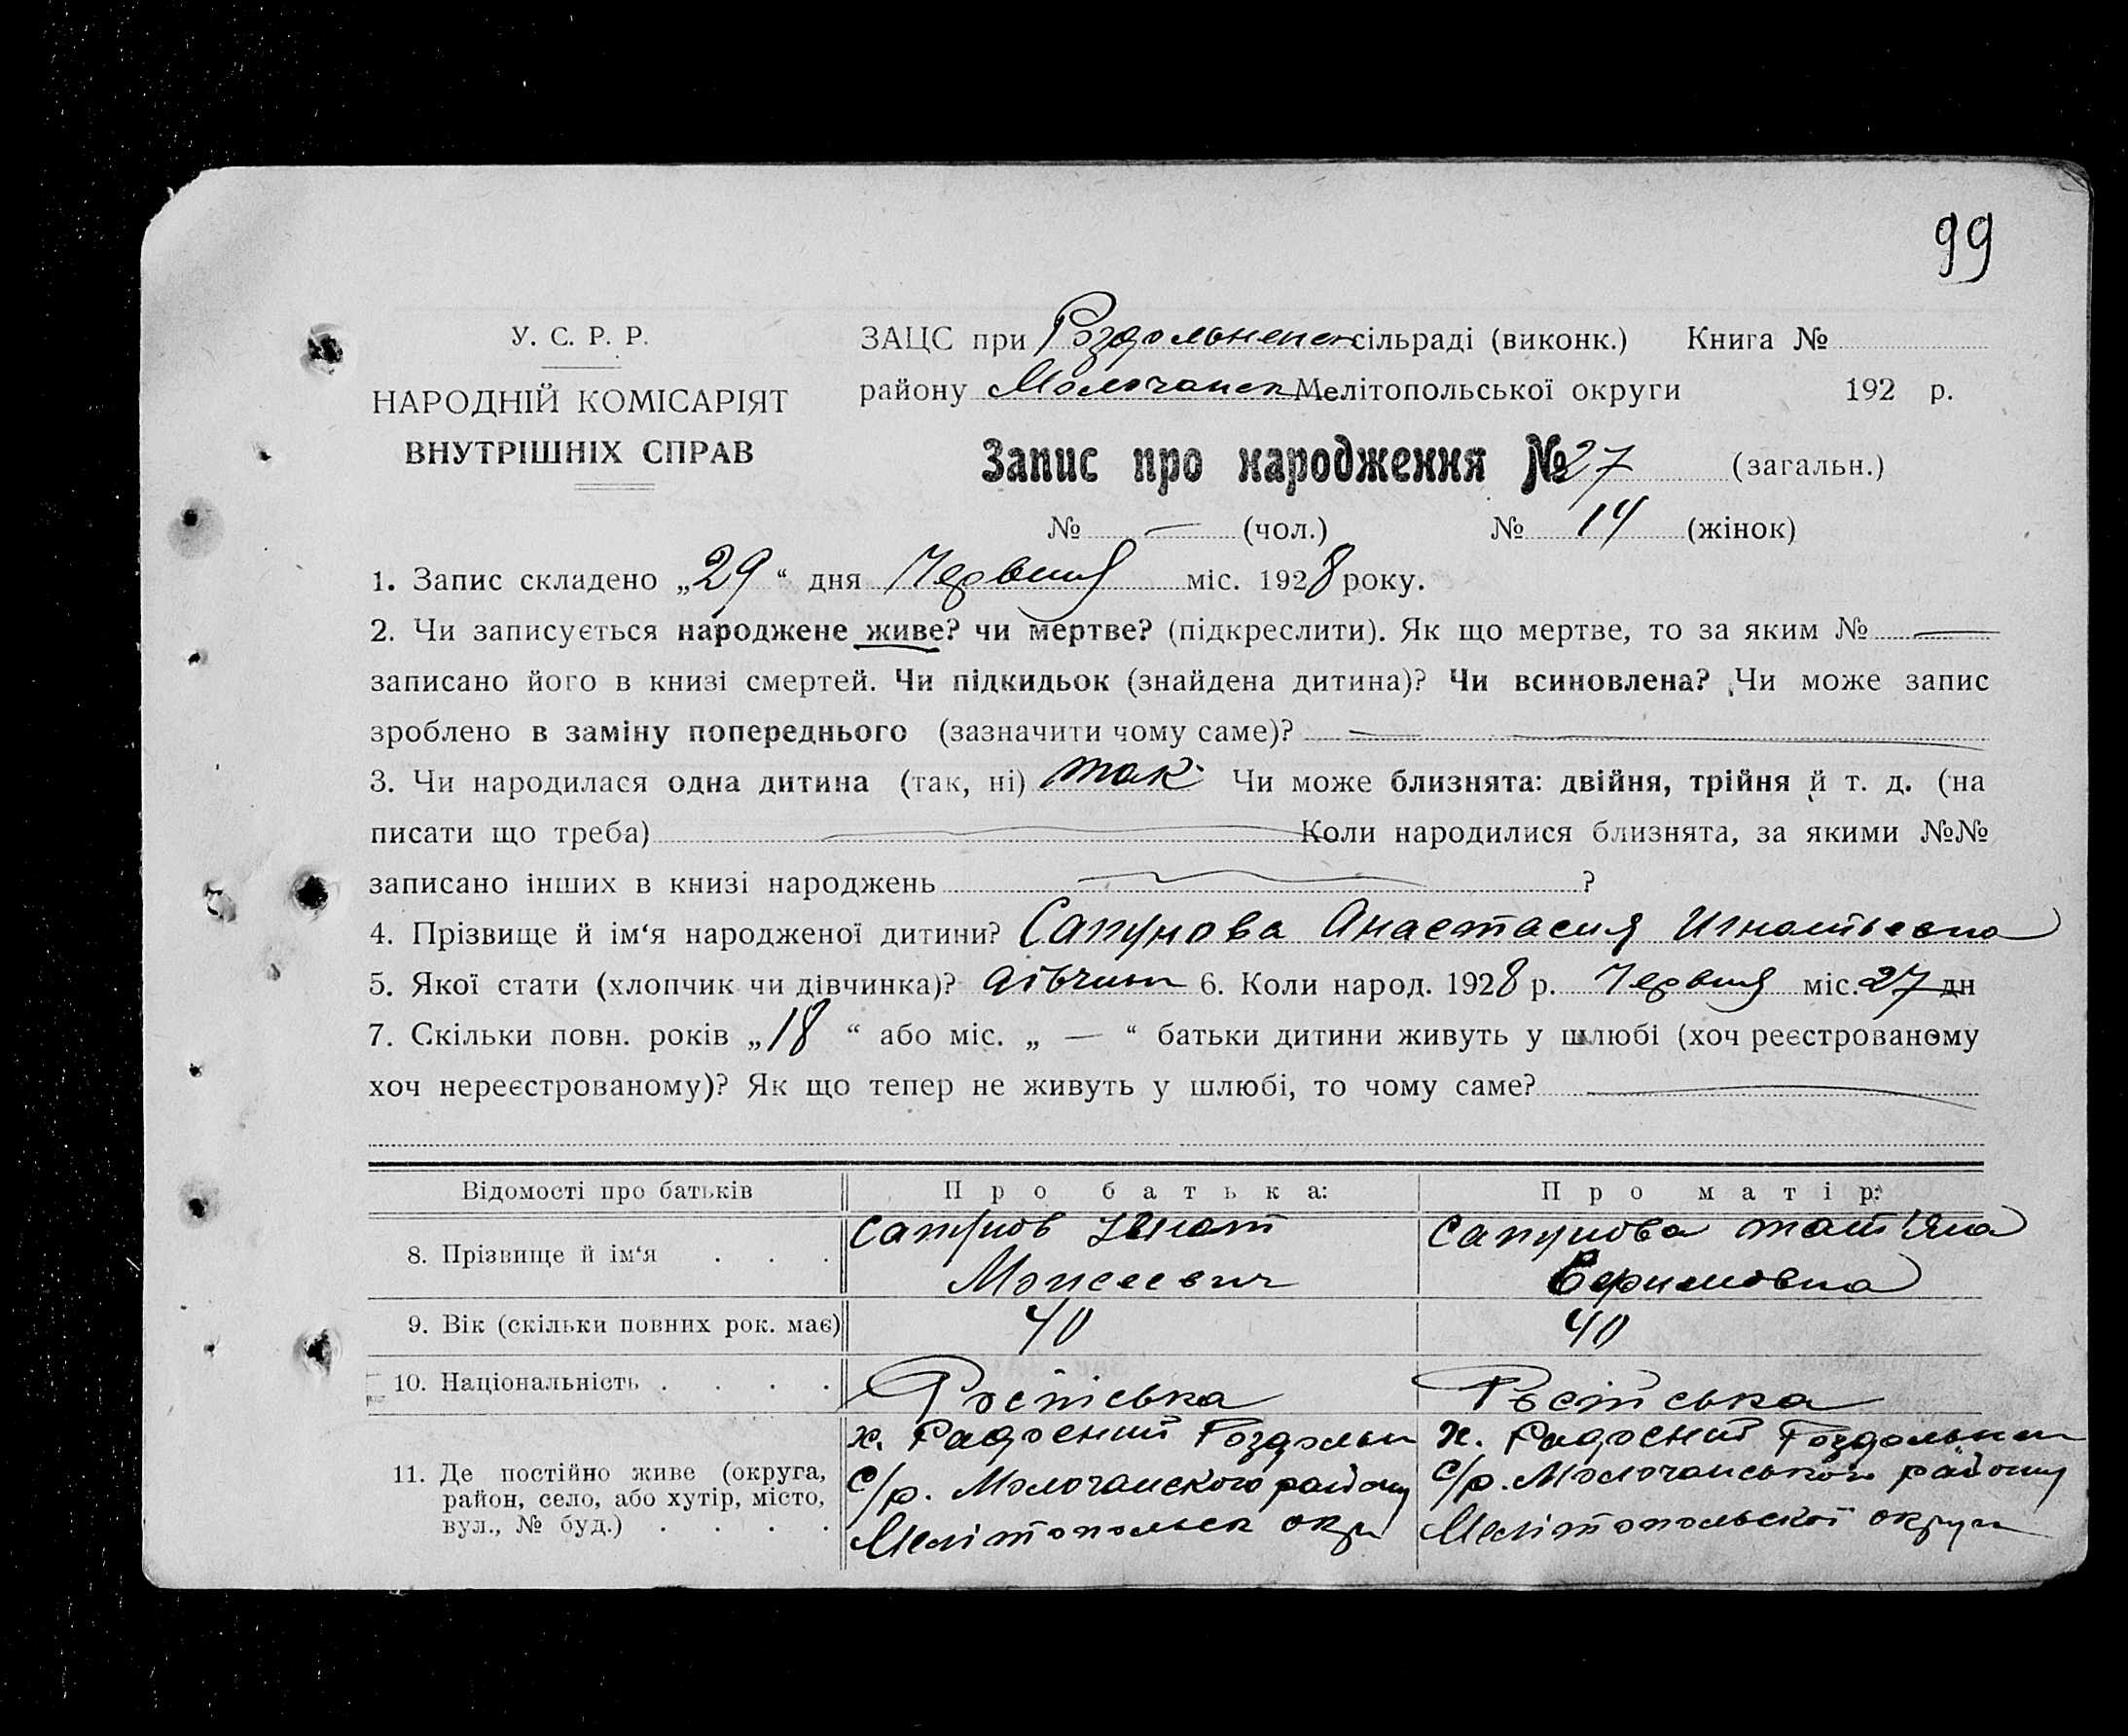 99
У. С. Р. Р.
НАРОДНІЙ КОМІСАРІЯТ
ВНУТРІШНІХ СПРАВ
ЗАЦС при Роздольненск сільраді (виконк.) Книга №
району Молочанск Мелітопольської округи 192 р.
Запис про народження № 27 (загальн.)
№ — (чол.) № 14 (жінок)
1. Запис складено „29“ дня Червня міс. 1928 року.
2. Чи записується народжене живе? чи мертве? (підкреслити). Як що мертве, то за яким № —
записано його в книзі смертей. Чи підкидьок (знайдена дитина)? Чи всиновлена? Чи може запис
зроблено в заміну попереднього (зазначити чому саме)? — —
3. Чи народилася одна дитина (так, ні) так Чи може близнята: двійня, трійня й т. д. (на
писати що треба) — Коли народилися близнята, за якими №№
записано інших в книзі народжень — ?
4. Прізвище й ім‘я народженої дитини? Сапунова Анастасия Игнатьевна
5. Якої стати (хлопчик чи дівчинка)? дівчина 6. Коли народ. 1928 р. Червня міс. 27 дн
7. Скільки повн. років „18“ або міс. „ — “ батьки дитини живуть у шлюбі (хоч реєстрованому
хоч нереєстрованому)? Як що тепер не живуть у шлюбі, то чому саме? —
Відомості про батьків Про батька: Про матір:
8. Прізвище й ім‘я . . . Сапунов Ігнат Моисеевич Сапунова Тат'яна Ефимовна
9. Вік (скільки повних рок. має) 40 40
10. Національність . . . . Російська Російська
11. Де постійно живе (округа, район, село, або хутір, місто, вул., № буд.) . . . .
х. Радосний Роздольн
с/р. Молочанского району
Мелітопольск окр
х. Радосний Роздольнен
с/р. Молочанського району
Мелітопольскої округи